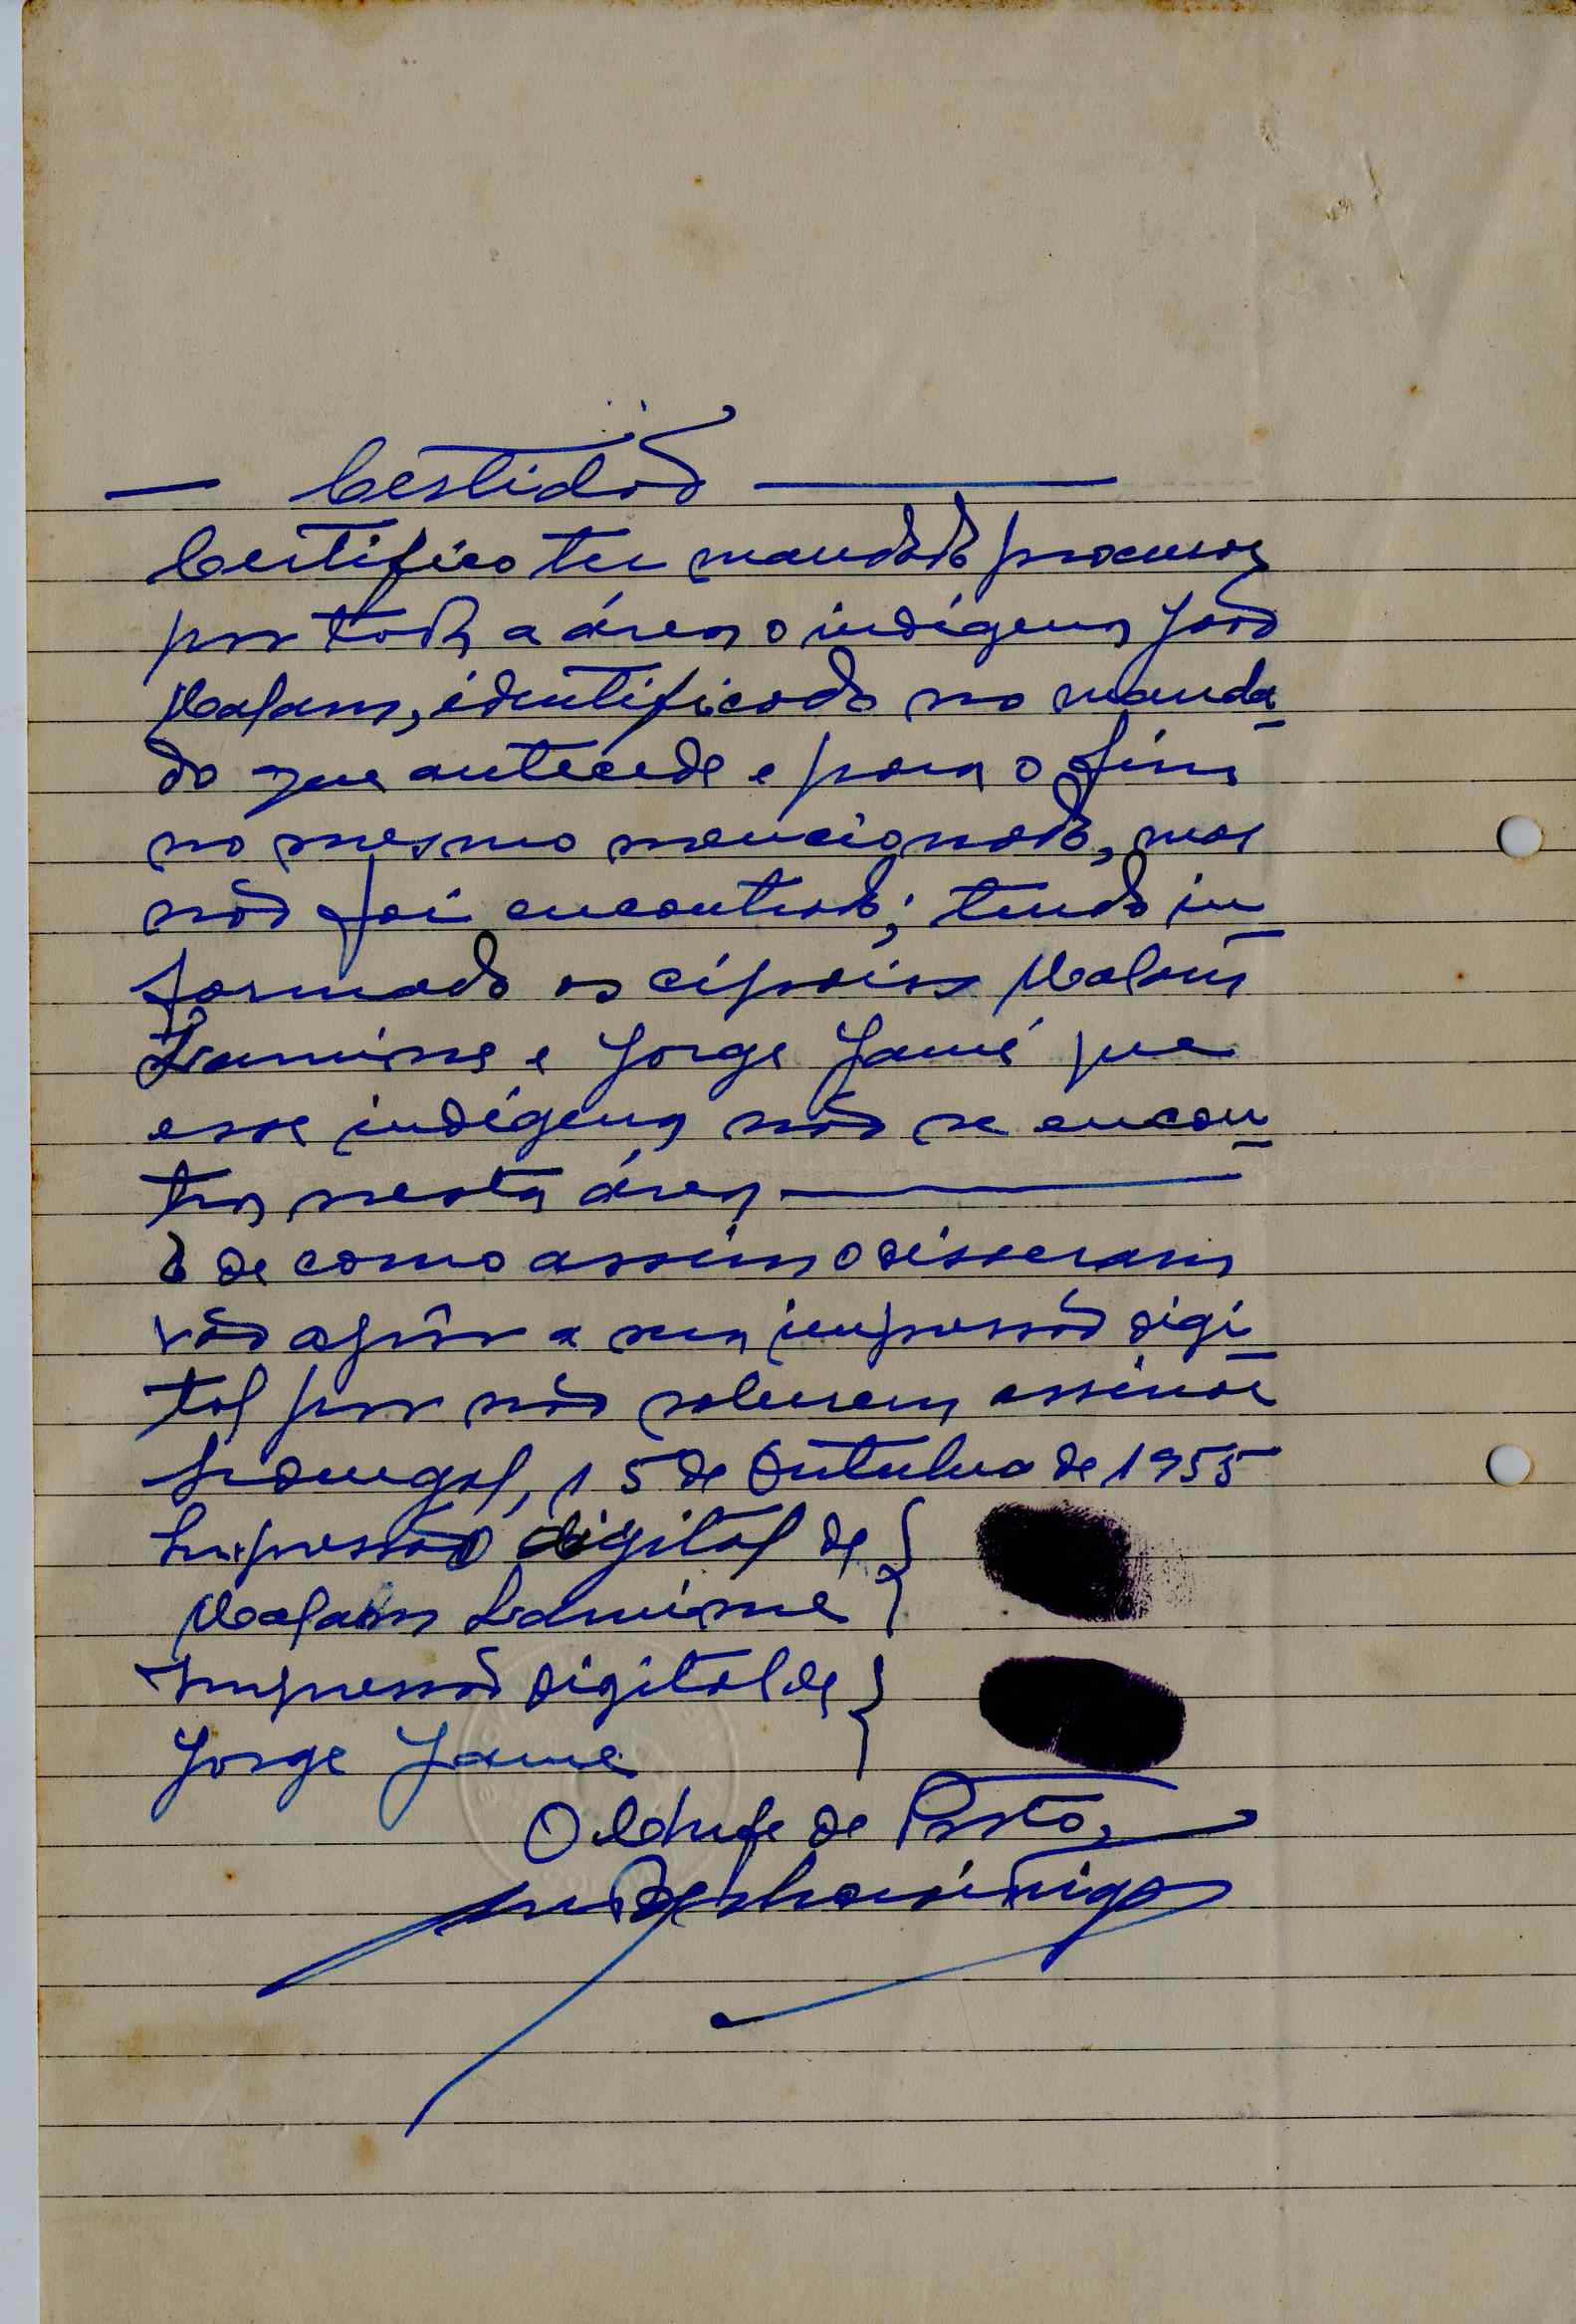 — Certidão —
Certifico ter mandado procurar
por toda a área o indígena João
Malam, identificado no manda-
do que antecede e para o fim
no mesmo mencionado, mas
não foi encontrado; tendo in-
formado os cipaios Malam
e Jorge Jamé que
esse indígena não se encon-
tra nesta área —
E de como assim o disseram
vão apôr a sua impressão digi-
tal por não saberem assinar
15 de Outubro de 1955
Impressão digital de }
Malam
Impressão digital de }
Jorge Jame
O Chefe de Posto,